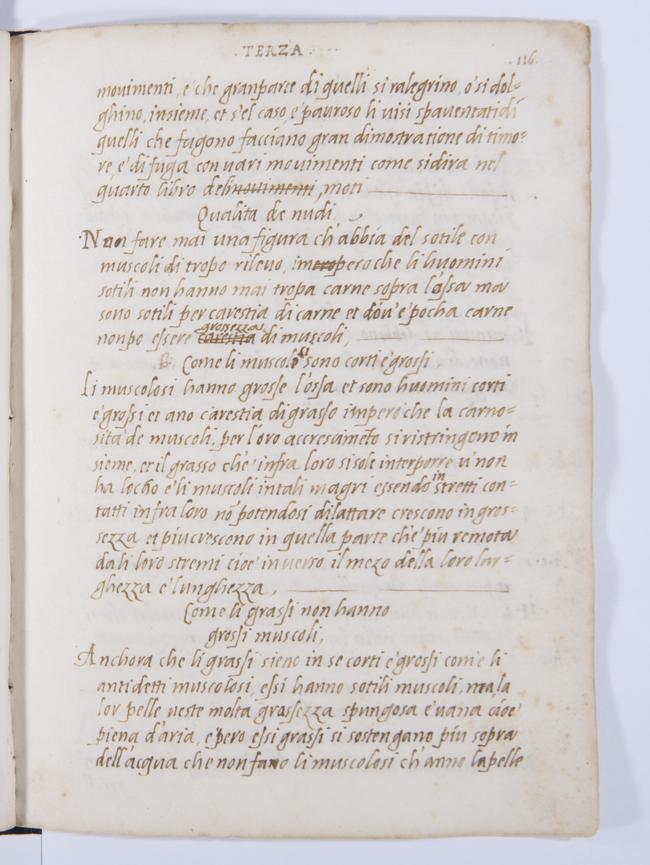 . TERZA .
116.
movimenti, e' che gran parte di quelli si ralegrino, o' si dol=
ghino, insieme, et s'el caso e' pauroso li visi spaventati di
quelli che fagono facciano gran dimostratione di timo=
re, e' di fuga con vari movimenti come si dira nel
quarto libro deli movimenti, moti
Qualita de nudi.
Non fare mai una figura ch'abbia del sotile con
muscoli di tropo rilevo, im tropo pero che li huomini
sotili non hanno mai tropa carne sopra l'ossa ma
sono sotili per carestia di carne et dov'e pocha carne
non po essere carestia grossezza di muscoli,
Come li muscolosi sono corti e' grossi
Li muscolosi hanno grosse l'ossa et sono huomini corti
e' grossi et ano carestia di grasso impero che la carno=
sita de muscoli, per l'oro accrescimēto si ristringono in
sieme, et il grasso che' infra loro si sole interporre vi non
ha locho e' li muscoli in tali magri essendo in stretti con=
tatti infra loro nō potendosi dilattare crescono in gros=
sezza et piu crescono in quella parte che' piu remota
da li loro stremi cioe in verso il mezo della loro lar=
ghezza e' lunghezza,
Come li grassi non hanno
grossi muscoli,
Anchora che li grassi sieno in se corti e' grossi com'e li
antidetti muscolosi, essi hanno sotili muscoli, ma la
lor pelle veste molta grossezza spungosa e' vana cioe'
piena d'aria, e' pero essi grassi si sostengano piu sopra
dell'acqua che non fano li muscolosi ch'anno la pelle